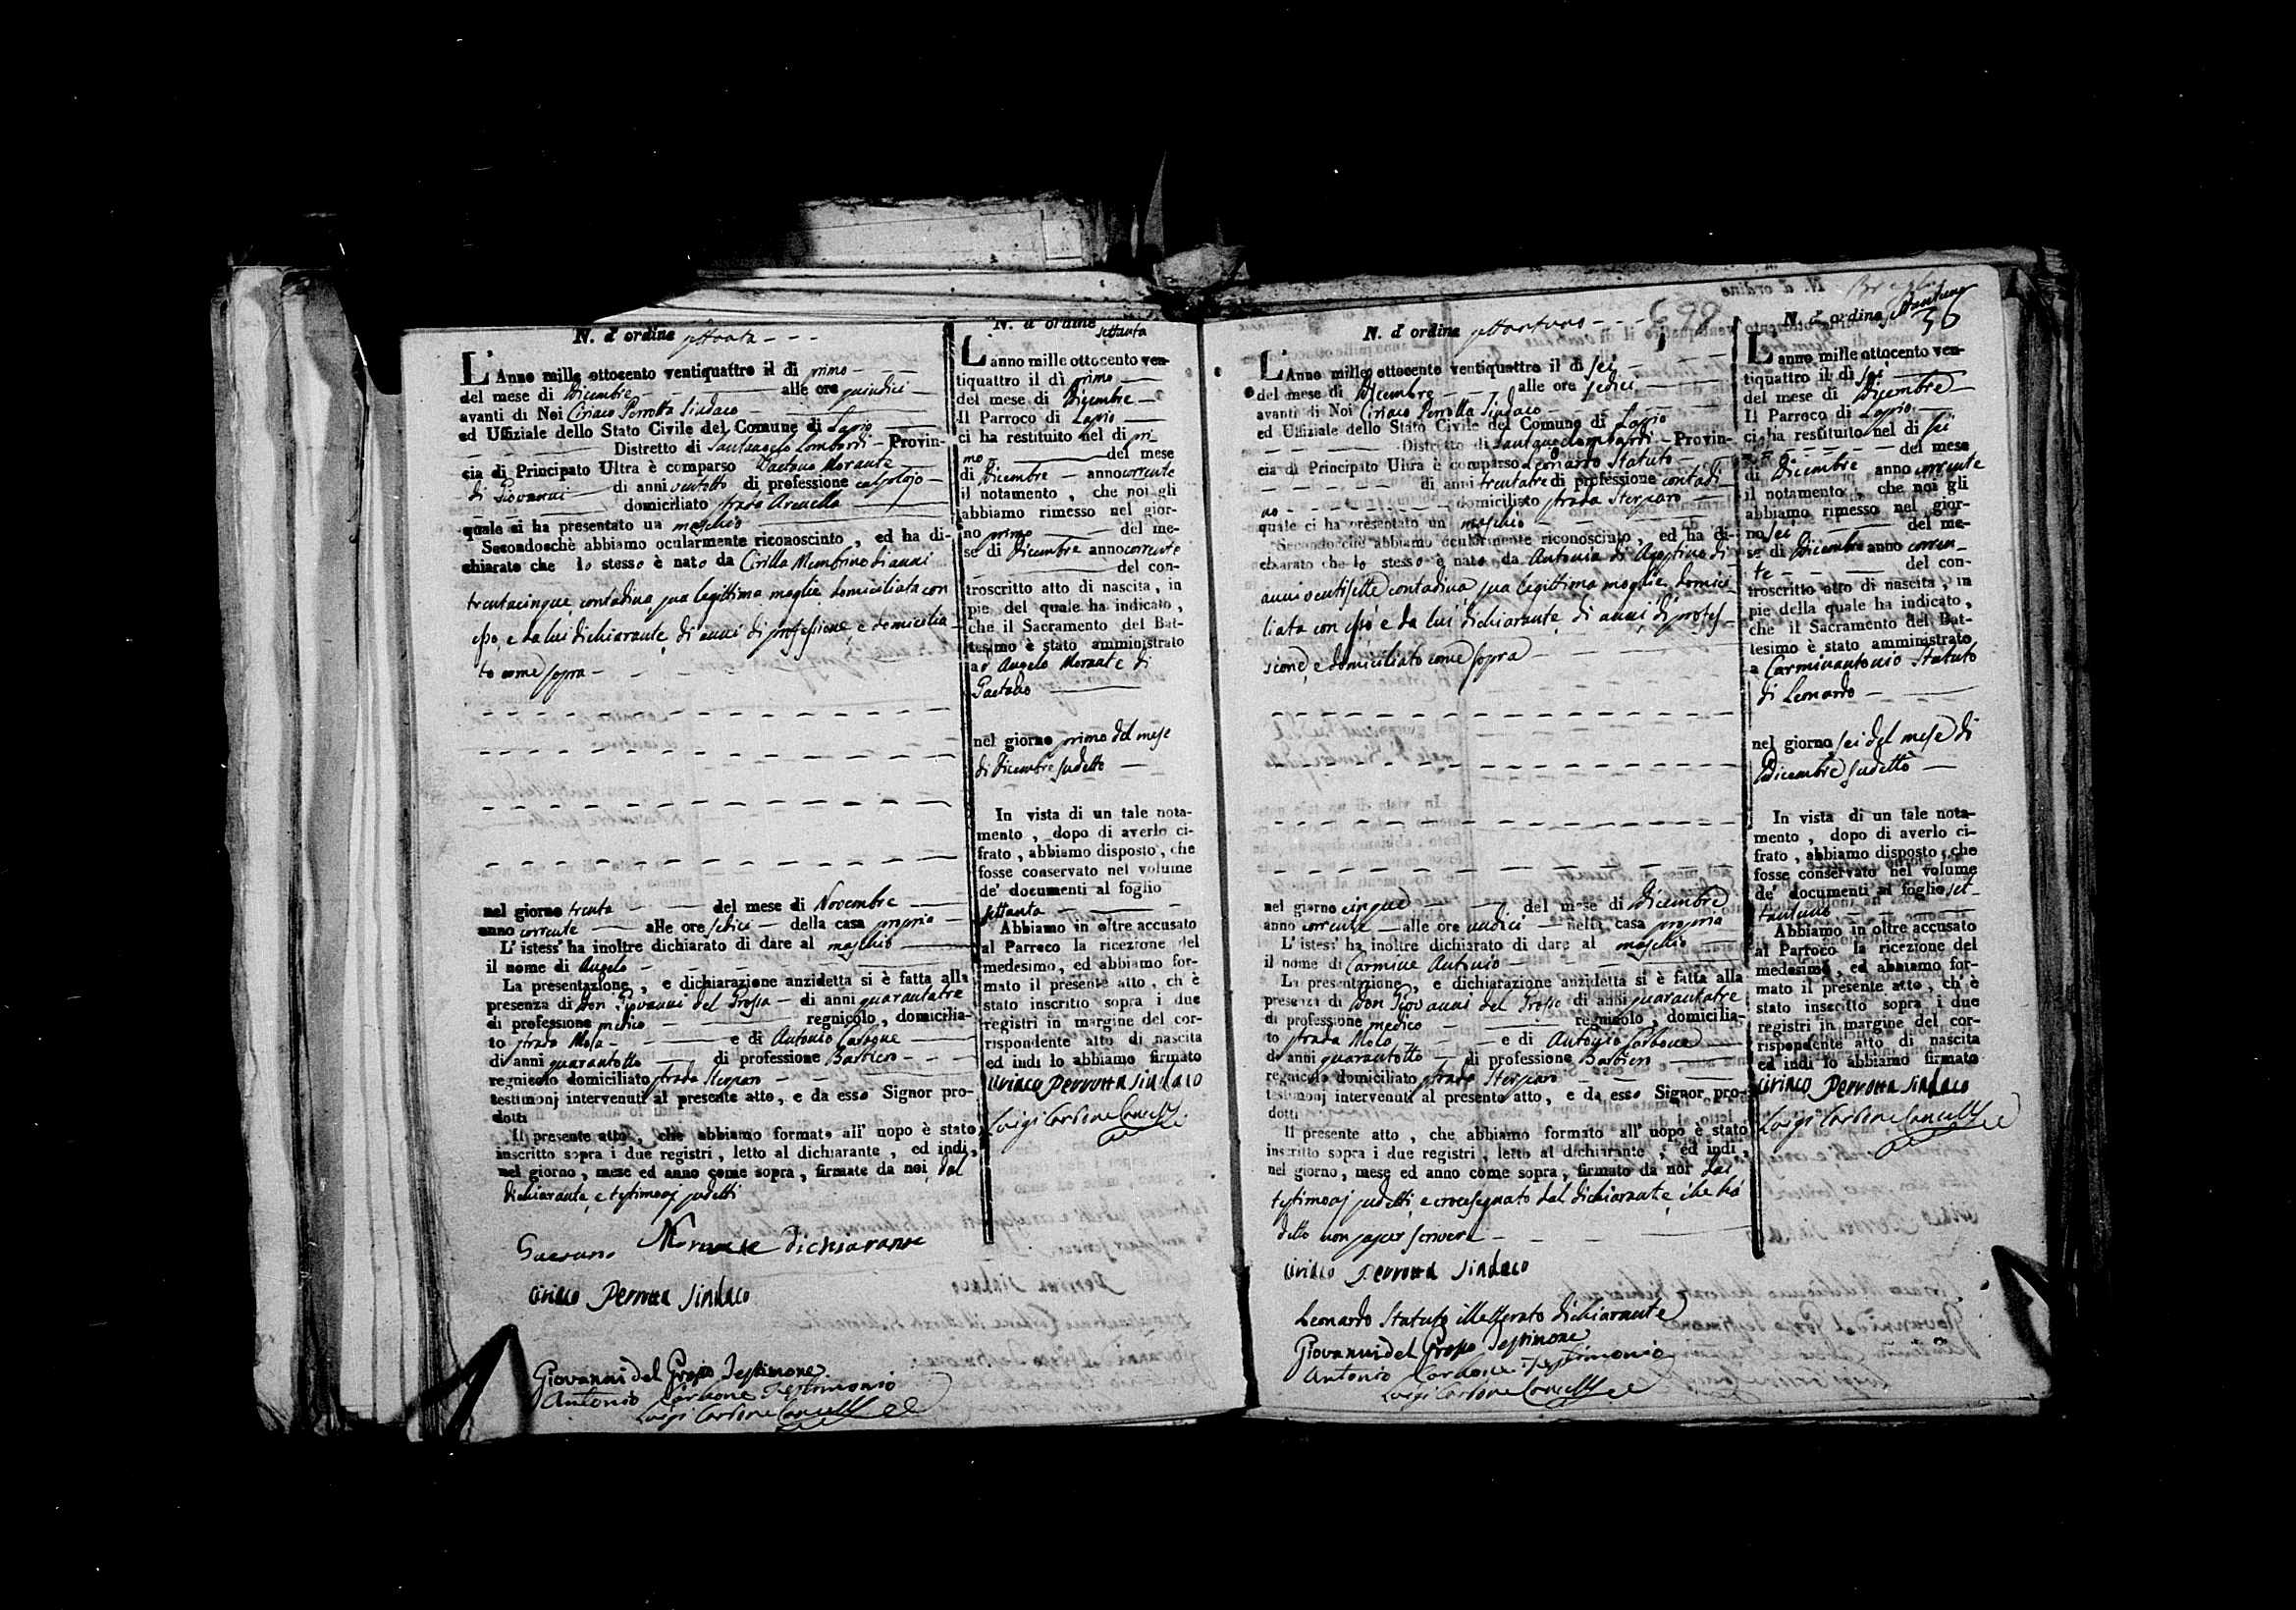 N. d' ordine settanta
L'Anno mille ottocento ventiquattro il di primo
del mese di Dicembre alle ore quindici
avanti di Noi Ciriaco Perrotta Sindaco
ed Uffiziale dello Stato Civile del Comune di Lapio
Distretto di Santangelo Lombardi Provin-
cia di Principato Ultra è comparso Gaetano Morante
di Giovanni di anni ventotto di professione calzolajo
domiciliato strada Arenella
quale ci ha presentato un maschio
Secondoschè abbiamo ocularmente riconosciuto, ed ha di-
chiarato che lo stesso è nato da Cirilla Membrino di anni
trentacinque contadina sua legittima moglie domiciliata con
esso, e da lui dichiarante di anni di professione, e domicilia-
to come sopra
nel giorno trenta del mese di Novembre
anno corrente alle ore sedici della casa propria
L' istess' ha inoltre dichiarato di dare al maschio
il nome di Angelo
La presentazione, e dichiarazione anzidetta si è fatta alla
presenza di Don Giovanni del Grosso di anni quarantatre
di professione medico regnicolo, domicilia-
to strada Molo e di Antonio Carbone
di anni quarantotto di professione Barbiero
regnicolo domiciliato strada Sterparo
testimonj intervenuti al presente atto, e da esso Signor pro-
dotti
Il presente atto, che abbiamo formato all' uopo è stato
inscritto sopra i due registri, letto al dichiarante, ed indi,
nel giorno, mese ed anno come sopra, firmato da noi, dal
dichiarante, e testimonj sudetti
Gaetano Morante dichiarante
Ciriaco Perrotta Sindaco
Giovanni del Grosso Testimone
Antonio Carbone Testimonio
Luigi Carbone Cancell.
N. d' ordine settanta
L'anno mille ottocento ven-
tiquattro il dì primo
del mese di Dicembre
Il Parroco di Lapio
ci ha restituito nel di pri
mo del mese
di Dicembre anno corrente
il notamento, che noi gli
abbiamo rimesso nel gior-
no primo del me-
se di Dicembre anno corrente
del con-
troscritto atto di nascita, in
piè del quale ha indicato,
che il Sacramento del Bat-
tesimo è stato amministrato
ad Angelo Morante di
Gaetano
nel giorno primo del mese
di Dicembre sudetto
In vista di un tale nota-
mento, dopo di averlo ci-
frato, abbiamo disposto, che
fosse conservato nel volume
de' documenti al foglio
settanta
Abbiamo in oltre accusato
al Parroco la ricezione del
medesimo, ed abbiamo for-
mato il presente atto, ch' è
stato inscritto sopra i due
registri in margine del cor-
rispondente atto di nascita
ed indi lo abbiamo firmato
Ciriaco Perrotta Sindaco
Luigi Carbone Cancell.
N. d' ordine settantuno 699
L'Anno mille ottocento ventiquattro il di sei
del mese di Dicembre alle ore sedici
avanti di Noi Ciriaco Perrotta Sindaco
ed Uffiziale dello Stato Civile del Comune di Lapio
Distretto di Santangelo Lombardi Provin-
cia di Principato Ultra è comparso Leonardo Statuto
di anni trentatre di professione contadi-
no domiciliato strada Sterparo
quale ci ha presentato un maschio
Secondoschè abbiamo ocularmente riconosciuto, ed ha di-
chiarato che lo stesso è nato da Antonia di Agostino di
anni ventisette contadina, sua legittima moglie, domici-
liata con esso e da lui dichiarante di anni, di profes-
sione, e domiciliato come sopra
nel giorno cinque del mese di Dicembre
anno corrente alle ore undici nella casa propria
L' istess' ha inoltre dichiarato di dare al maschio
il nome di Carmine Antonio
La presentazione, e dichiarazione anzidetta si è fatta alla
presenza di Don Giovanni del Grosso di anni quarantatre
di professione medico regnicolo, domicilia-
to strada Molo e di Antonio Carbone
di anni quarantotto di professione Barbiero
regnicolo domiciliato strada Sterparo
testimonj intervenuti al presente atto, e da esso Signor pro-
dotti
Il presente atto, che abbiamo formato all' uopo è stato
inscritto sopra i due registri, letto al dichiarante, ed indi,
nel giorno, mese ed anno come sopra, firmato da noi dai
testimonj sudetti, e crocesegnato dal dichiarante, che ha
detto non saper scrivere
Ciriaco Perrotta Sindaco
Leonardo Statuto illetterato dichiarante
Giovanni del Grosso Testimone
Antonio Carbone Testimonio
Luigi Carbone Cancell.
N. d' ordine settantuno
36
L'anno mille ottocento ven-
tiquattro il dì sei
del mese di Dicembre
Il Parroco di Lapio
ci ha restituito nel di sei
del mese
di Dicembre anno corrente
il notamento, che noi gli
abbiamo rimesso nel gior-
no sei del me-
se di Dicembre anno corren-
te del con-
troscritto atto di nascita, in
piè della quale ha indicato,
che il Sacramento del Bat-
tesimo è stato amministrato
a Carminantonio Statuto
di Leonardo
nel giorno sei del mese di
Dicembre sudetto
In vista di un tale nota-
mento, dopo di averlo ci-
frato, abbiamo disposto, che
fosse conservato nel volume
de' documenti al foglio set-
tantuno
Abbiamo in oltre accusato
al Parroco la ricezione del
medesimo, ed abbiamo for-
mato il presente atto, ch' è
stato inscritto sopra i due
registri in margine del cor-
rispondente atto di nascita
ed indi lo abbiamo firmato
Ciriaco Perrotta Sindaco
Luigi Carbone Cancell.